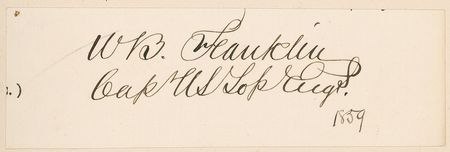 W B. Franklin
Capt US Top Engrs.
s.)
1859